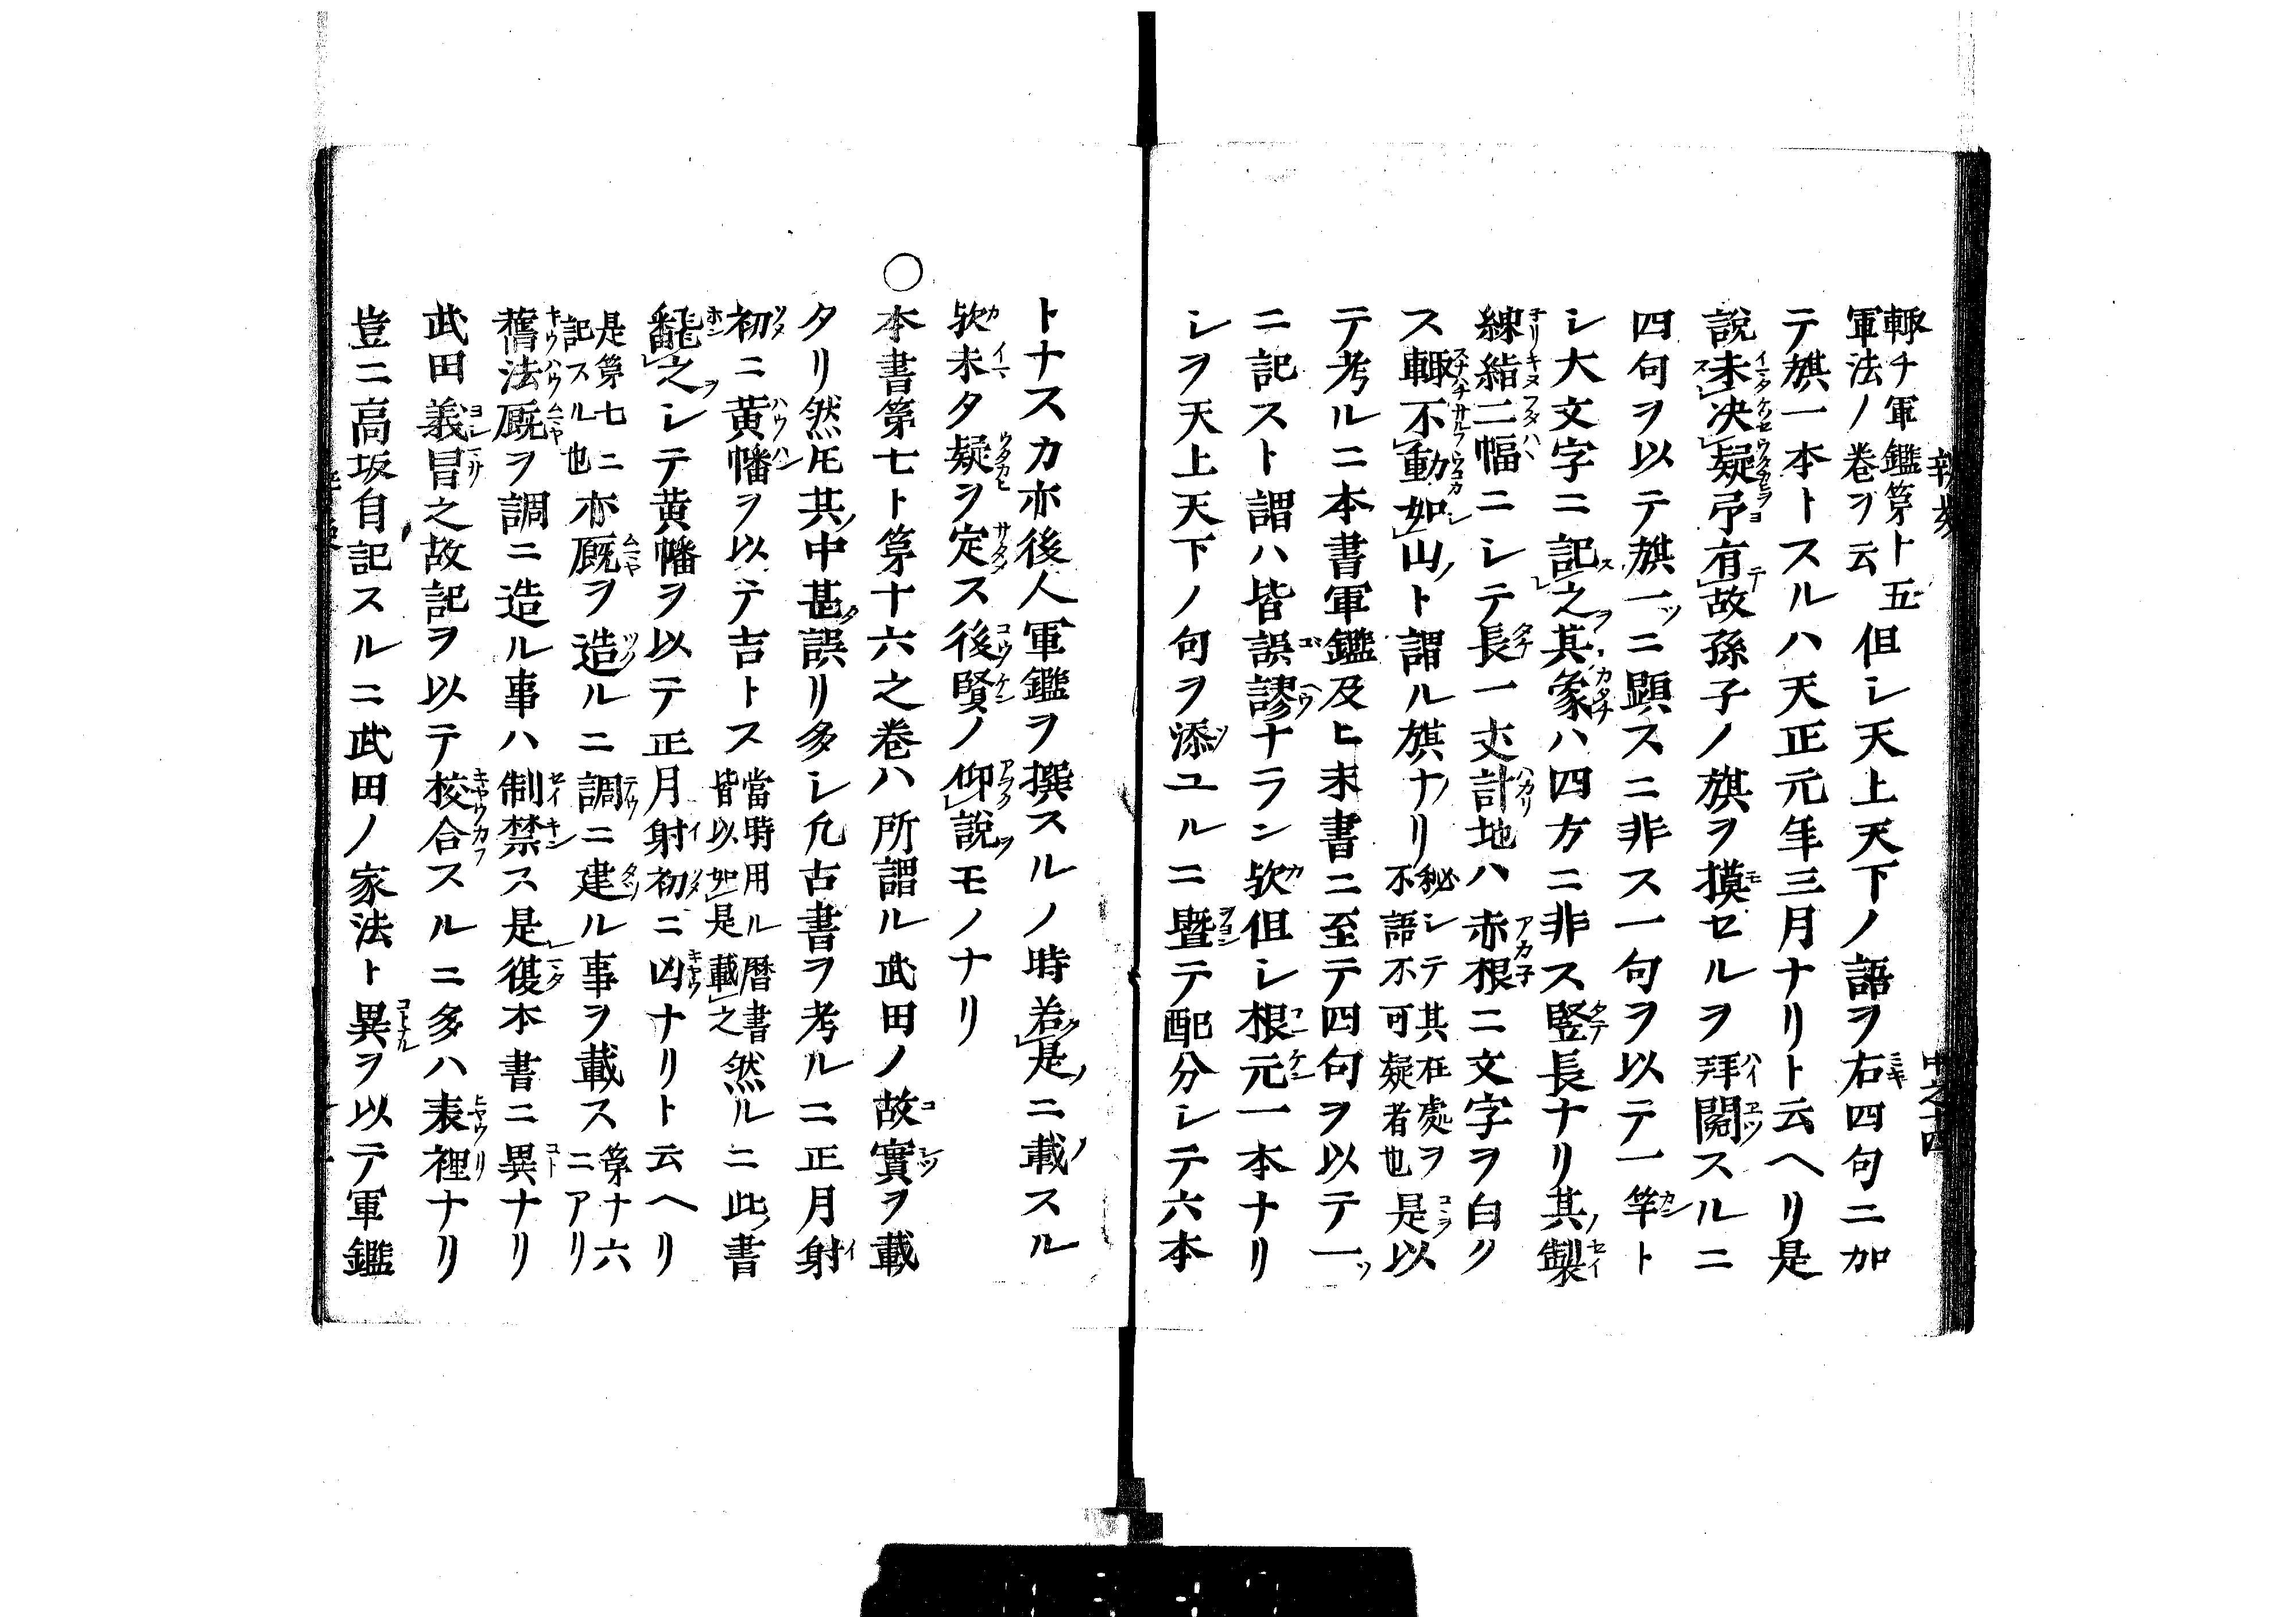 輙チ軍鑑第ト五
軍法ノ巻ヲ云 但シ天上天下ノ語ヲ右四句ニ加
テ旗一本トスルハ天正元年三月ナリト云ヘリ是
說未决疑弔有故孫子ノ旗ヲ摸セルヲ拜閱スルニ
四句ヲ以テ旗一ツニ顕スニ非ス一句ヲ以テ一竿ト
シ大文字ニ記之其象ハ四方ニ非ス竪長ナリ其製
練結二幅ニシテ長一丈計地ハ赤根ニ文字ヲ白ク
ス輙不動如山ト謂ル旗ナリ 秘シテ其在處ヲ
不語不可疑者也 是以
テ考ルニ本書軍鑑及ヒ末書ニ至テ四句ヲ以テ一ツ
ニ記スト謂ハ皆誤謬ナラン欤但シ根元一本ナリ
シヲ天上天下ノ句ヲ添ユルニ曁テ配分シテ六本
トナスカ亦後人軍鑑ヲ撰スルノ時若是ニ載スル
欤未タ疑ヲ定ス後賢ノ仰說モノナリ
○本書第七ト第十六之巻ハ所謂ル武田ノ故實ヲ載
タリ然𪜈其中甚誤リ多シ凢古書ヲ考ルニ正月射
初ニ黄幡ヲ以テ吉トス 當時用ル曆書
皆以如是載之 然ルニ此書
飜之シテ黄幡ヲ以テ正月射初ニ凶ナリト云ヘリ
是第七ニ
記スル也 亦厩ヲ造ルニ調ニ建ル事ヲ載ス 第十六
ニアリ
舊法厩ヲ調ニ造ル事ハ制禁ス是復本書ニ異ナリ
武田義冒之故記ヲ以テ校合スルニ多ハ表裡ナリ
豈ニ高坂自記スルニ武田ノ家法ト異ヲ以テ軍鑑